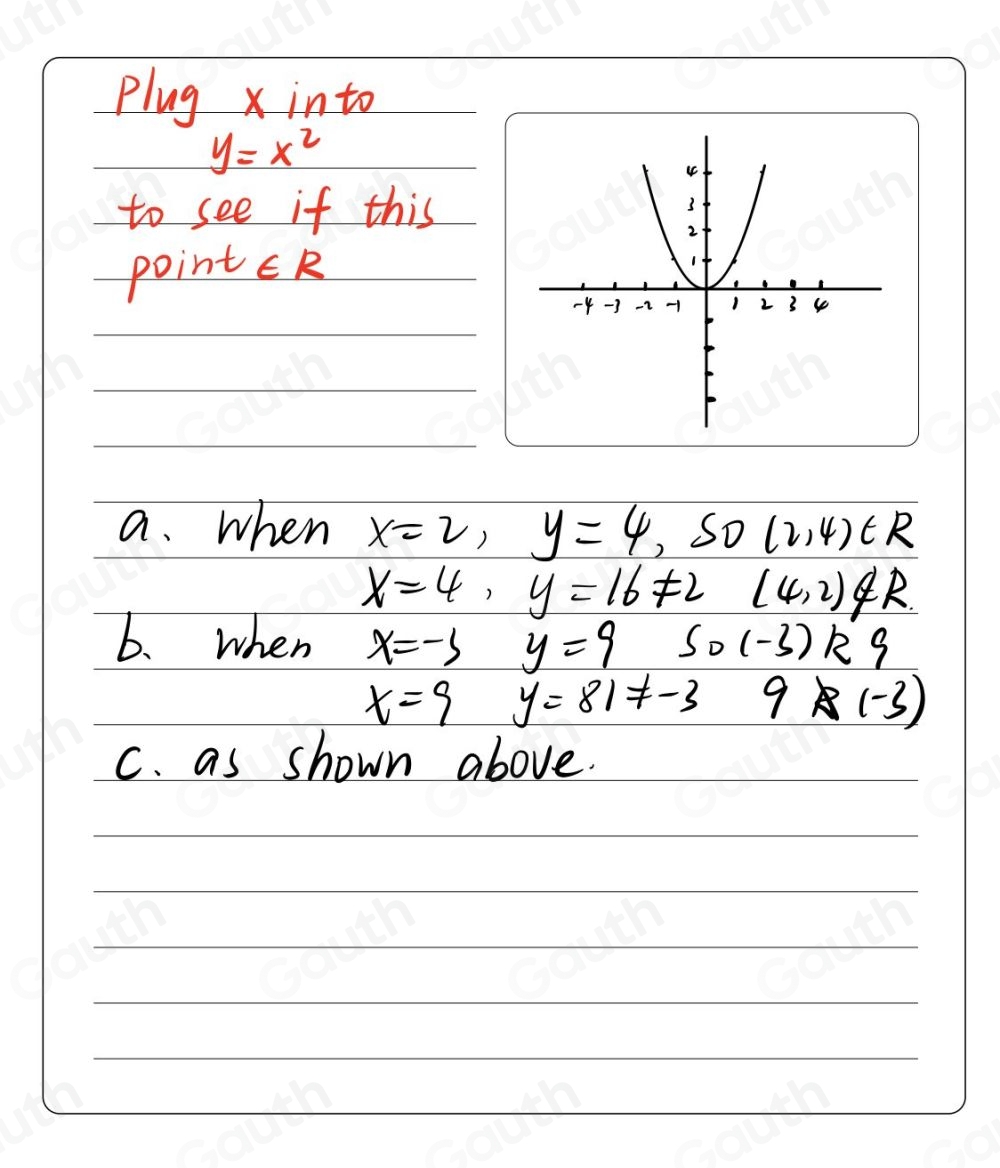 Plug x into
y = x²
to see if this
point ∈ R
4
3
2
1
-4 -3 -2 -1 1 2 3 4
a. When x=2, y=4, so (2,4)∈R
x=4, y=16≠2 (4,2)∉R.
b. when x=-3 y=9 So (-3) R 9
x=9 y=81≠-3 9 R̸ (-3)
c. as shown above.
Gauth